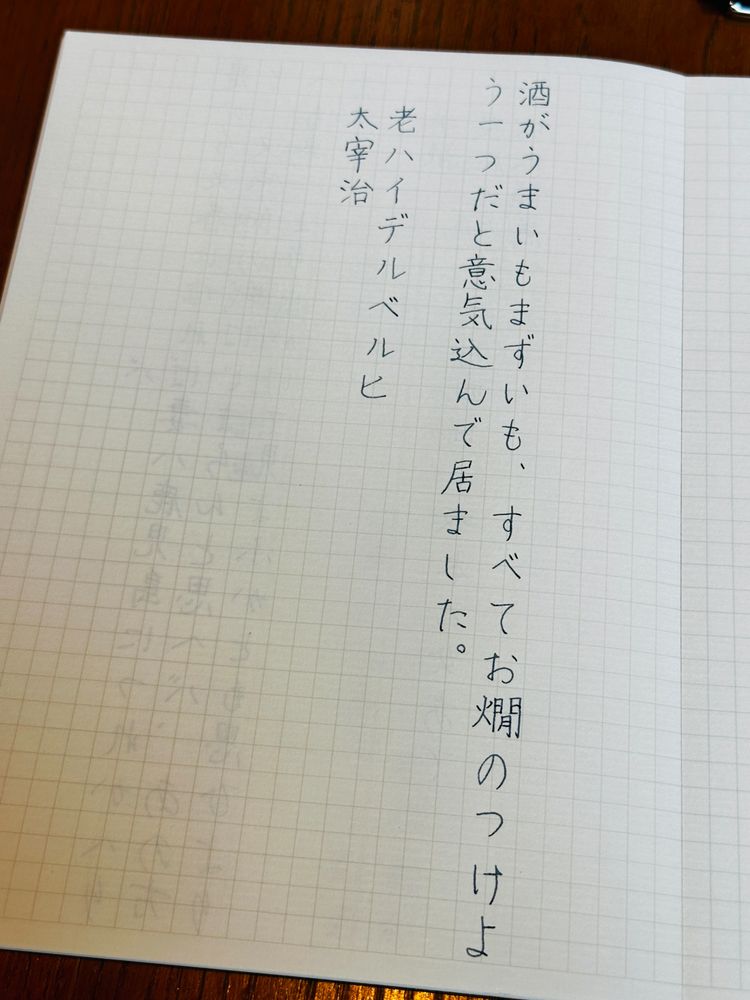 酒がうまいもまずいも、すべてお燗のつけよ
う一つだと意気込んで居ました。
老ハイデルベルヒ
太宰治